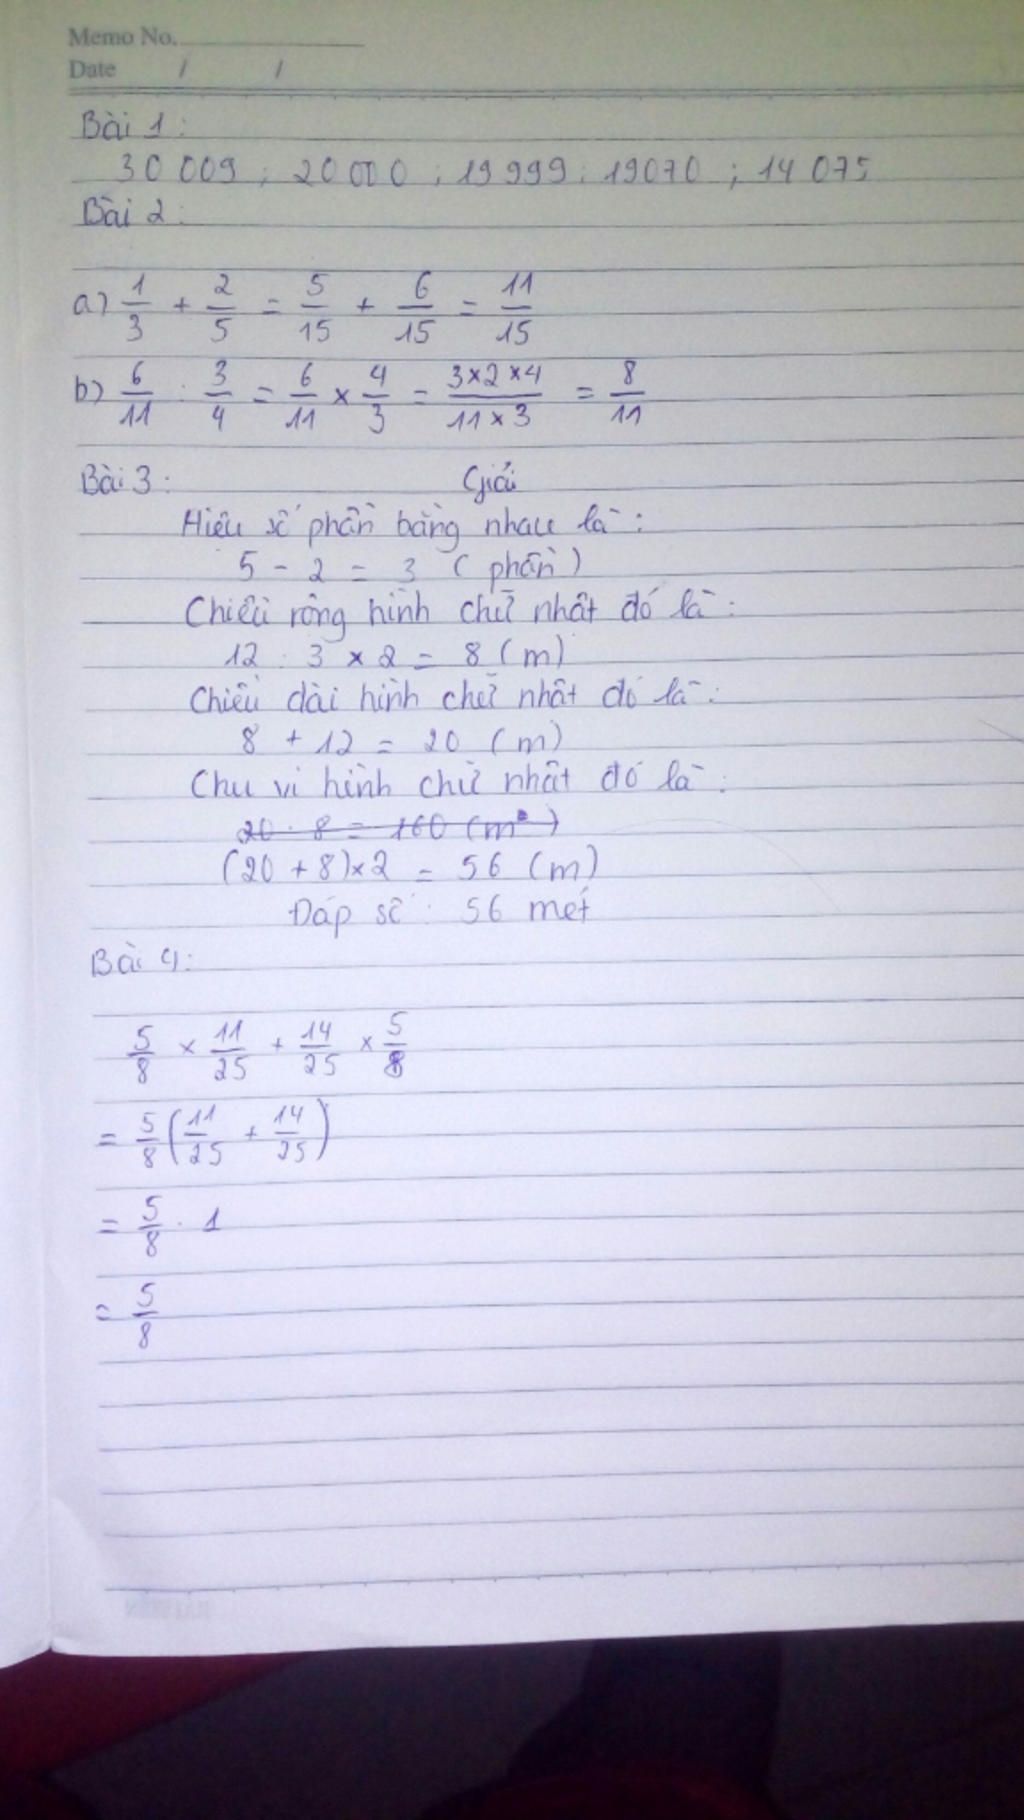 Memo No.
Date / /
Bài 1:
30 009 ; 20 000 ; 19 999 ; 19070 ; 14 075
Bài 2:
a) 1/3 + 2/5 = 5/15 + 6/15 = 11/15
b) 6/11 : 3/4 = 6/11 × 4/3 = 3×2×4/11×3 = 8/11
Bài 3: Giải
Hiệu số phần bằng nhau là:
5 - 2 = 3 (phần)
Chiều rộng hình chữ nhật đó là:
12 : 3 × 2 = 8 (m)
Chiều dài hình chữ nhật đó là:
8 + 12 = 20 (m)
Chu vi hình chữ nhật đó là:
20 . 8 = 160 (m²)
(20 + 8)×2 = 56 (m)
Đáp số: 56 mét
Bài 4:
5/8 × 11/25 + 14/25 × 5/8
= 5/8 (11/25 + 14/25)
= 5/8 . 1
= 5/8